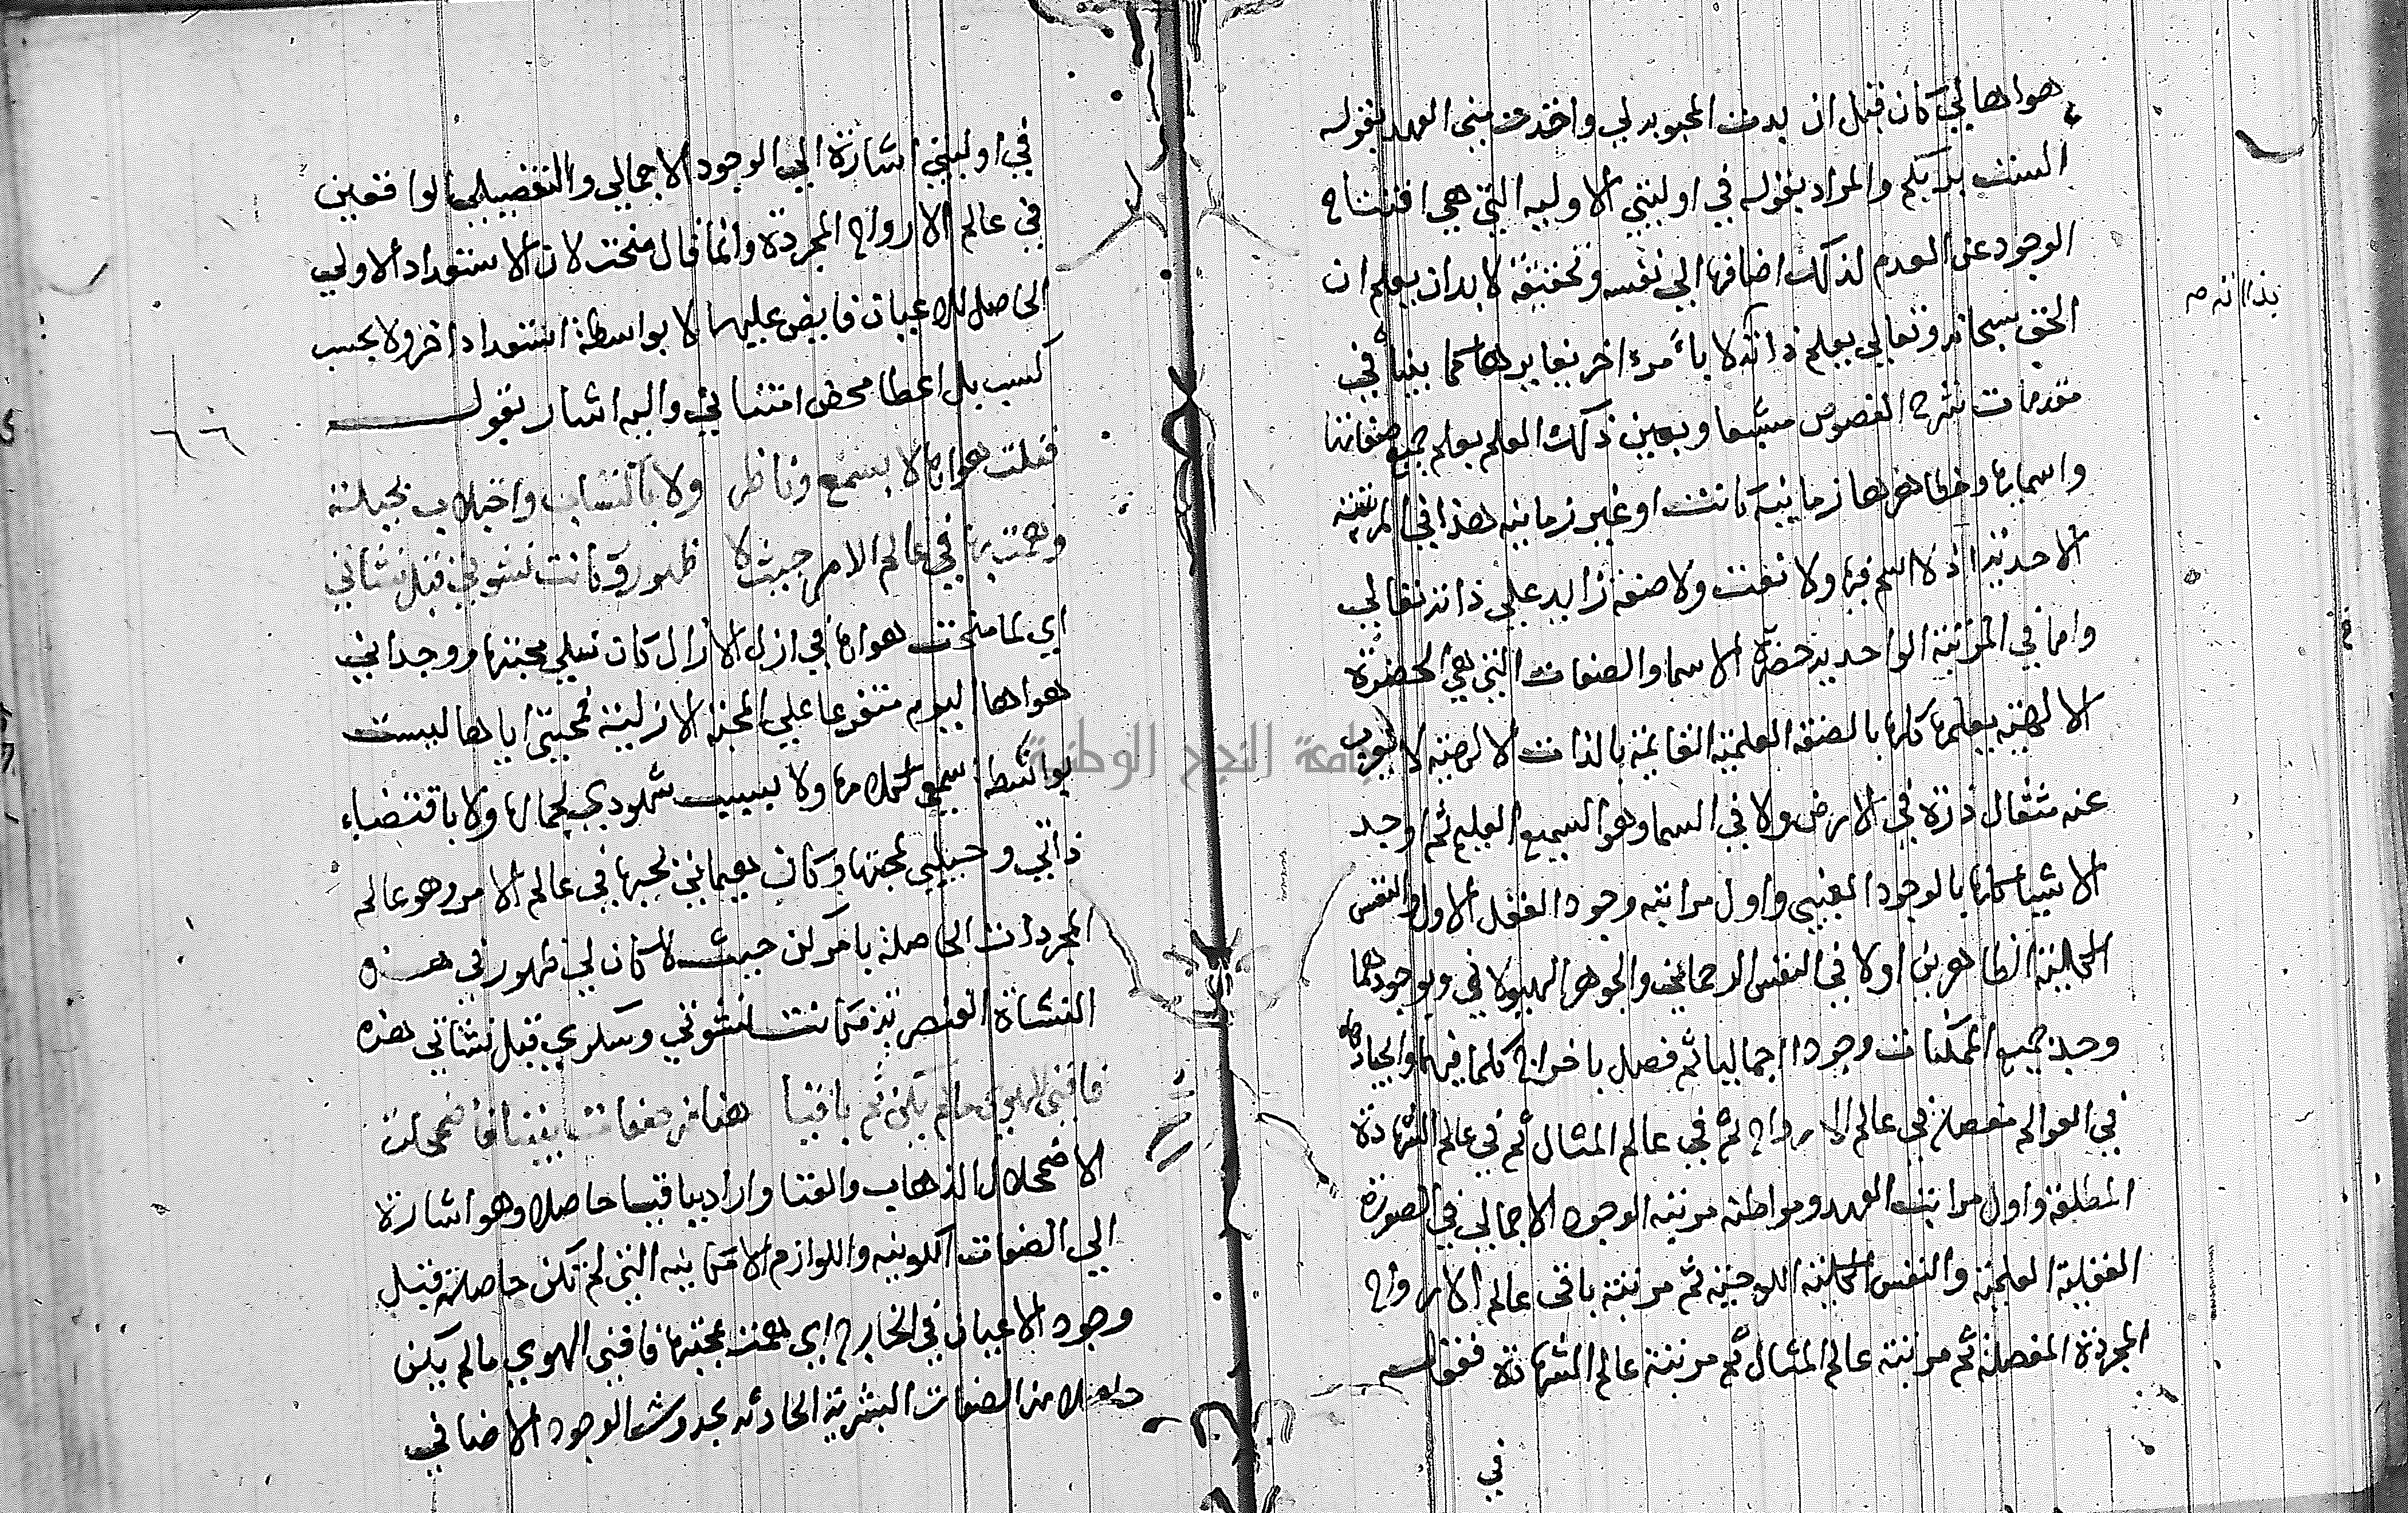 هواها لي كان قبل ان بدت المحبوبه لي واخذت مني العهد بقوله
الست بربكم والمراد بقوله في اوليتي الاوليه التي هي افتتاح
الوجود عن العدم لذلك اضافها الي نفسه وتحقيقه لا بد ان يعلم ان
الحق سبحانه وتعالي يعلم ذاته لا بأمر اخر يغايرها كما بينا في
بذاته صح
مقدمات شرح الفصوص مشبعا وبعين ذلك العلم يعلم جميع صفاتها
واسمايها ومظاهرها زمانيه كانت او غير زمانيه هذا في المرتبة
الاحديه اذ لا اسم فيها ولا نعت ولا صفة زايد علي ذاته تعالي
واما في المرتبة الواحديه حضرة الاسما والصفات التي هي الحضرة
الالهية يعلمها كلها بالصفة العلمية القايمة بالذات الالهية لا يعزب
عنه مثقال ذرة في الارض ولا في السما وهو السميع العليم ثم اوجد
الاشيا كلها بالوجود العيني واول مراتبه وجود العقل الاول والنفس
الكلية الظاهرين اولا في النفس الرحماني والجوهر الهيولاني وبوجودهما
وجد جميع الممكنات وجودا اجماليا ثم فصل باخراج كلما فيهما وايجاده
في العوالم مفصلة في عالم الارواح ثم في عالم المثال ثم في عالم الشهادة
المطلقة واول مراتب العهد ومواطنه مرتبة الوجود الاجمالي في الصورة
العقلية العلمية والنفس الكلية اللوحية ثم مرتبة باقي عالم الارواح
المجردة المفصلة ثم مرتبة عالم المثال ثم مرتبة عالم الشهادة فقوله
في
في اوليتي اشارة الي الوجود الاجمالي والتفصيلي الواقعين
في عالم الارواح المجردة وانما قال منحت لان الاستعداد الاولي
الحاصل للاعيان فايض عليها لا بواسطة استعداد اخر ولا بحسب
كسب بل اعطا محض امتناني واليه اشار بقوله
فنلت هواها لا بسمع وناظر ولا باكتساب واجتلاب بجبلة
وهمت بها في عالم الامر حيث لا ظهور وكانت نشوتي قبل نشأتي
اي لما منحت هواها في ازل الازال كان نيلي محبتها ووجداني
هواها اليوم متفرعا علي المحبة الازلية فمحبتي اياها ليست
بواسطة سمعي كلامها ولا بسبب شهودي لجمالها ولا باقتضاء
ذاتي وجبلتي لمحبتها وكان هيماني لحبها في عالم الامر وهو عالم
المجردات الحاصلة بامر كن حيث لا كان لي ظهور في هذه
النشاة العنصرية فكانت نشوتي وسكري قبل نشاتي هذه
فافني الهوي ما لم يكن ثم باقيا هنا من صفات بيننا فاضمحلت
الاضمحلال الذهاب والفنا واراد بباقيا حاصلا وهو اشارة
الي الصفات الكونية واللوازم الامكانية التي لم تكن حاصلة قبل
وجود الاعيان في الخارج اي همت بمحبتها فافني الهوي ما لم يكن
حاصلا من الصفات البشرية الحادثه بحدوث الوجود الاضافي
جامعة النجاح الوطنية